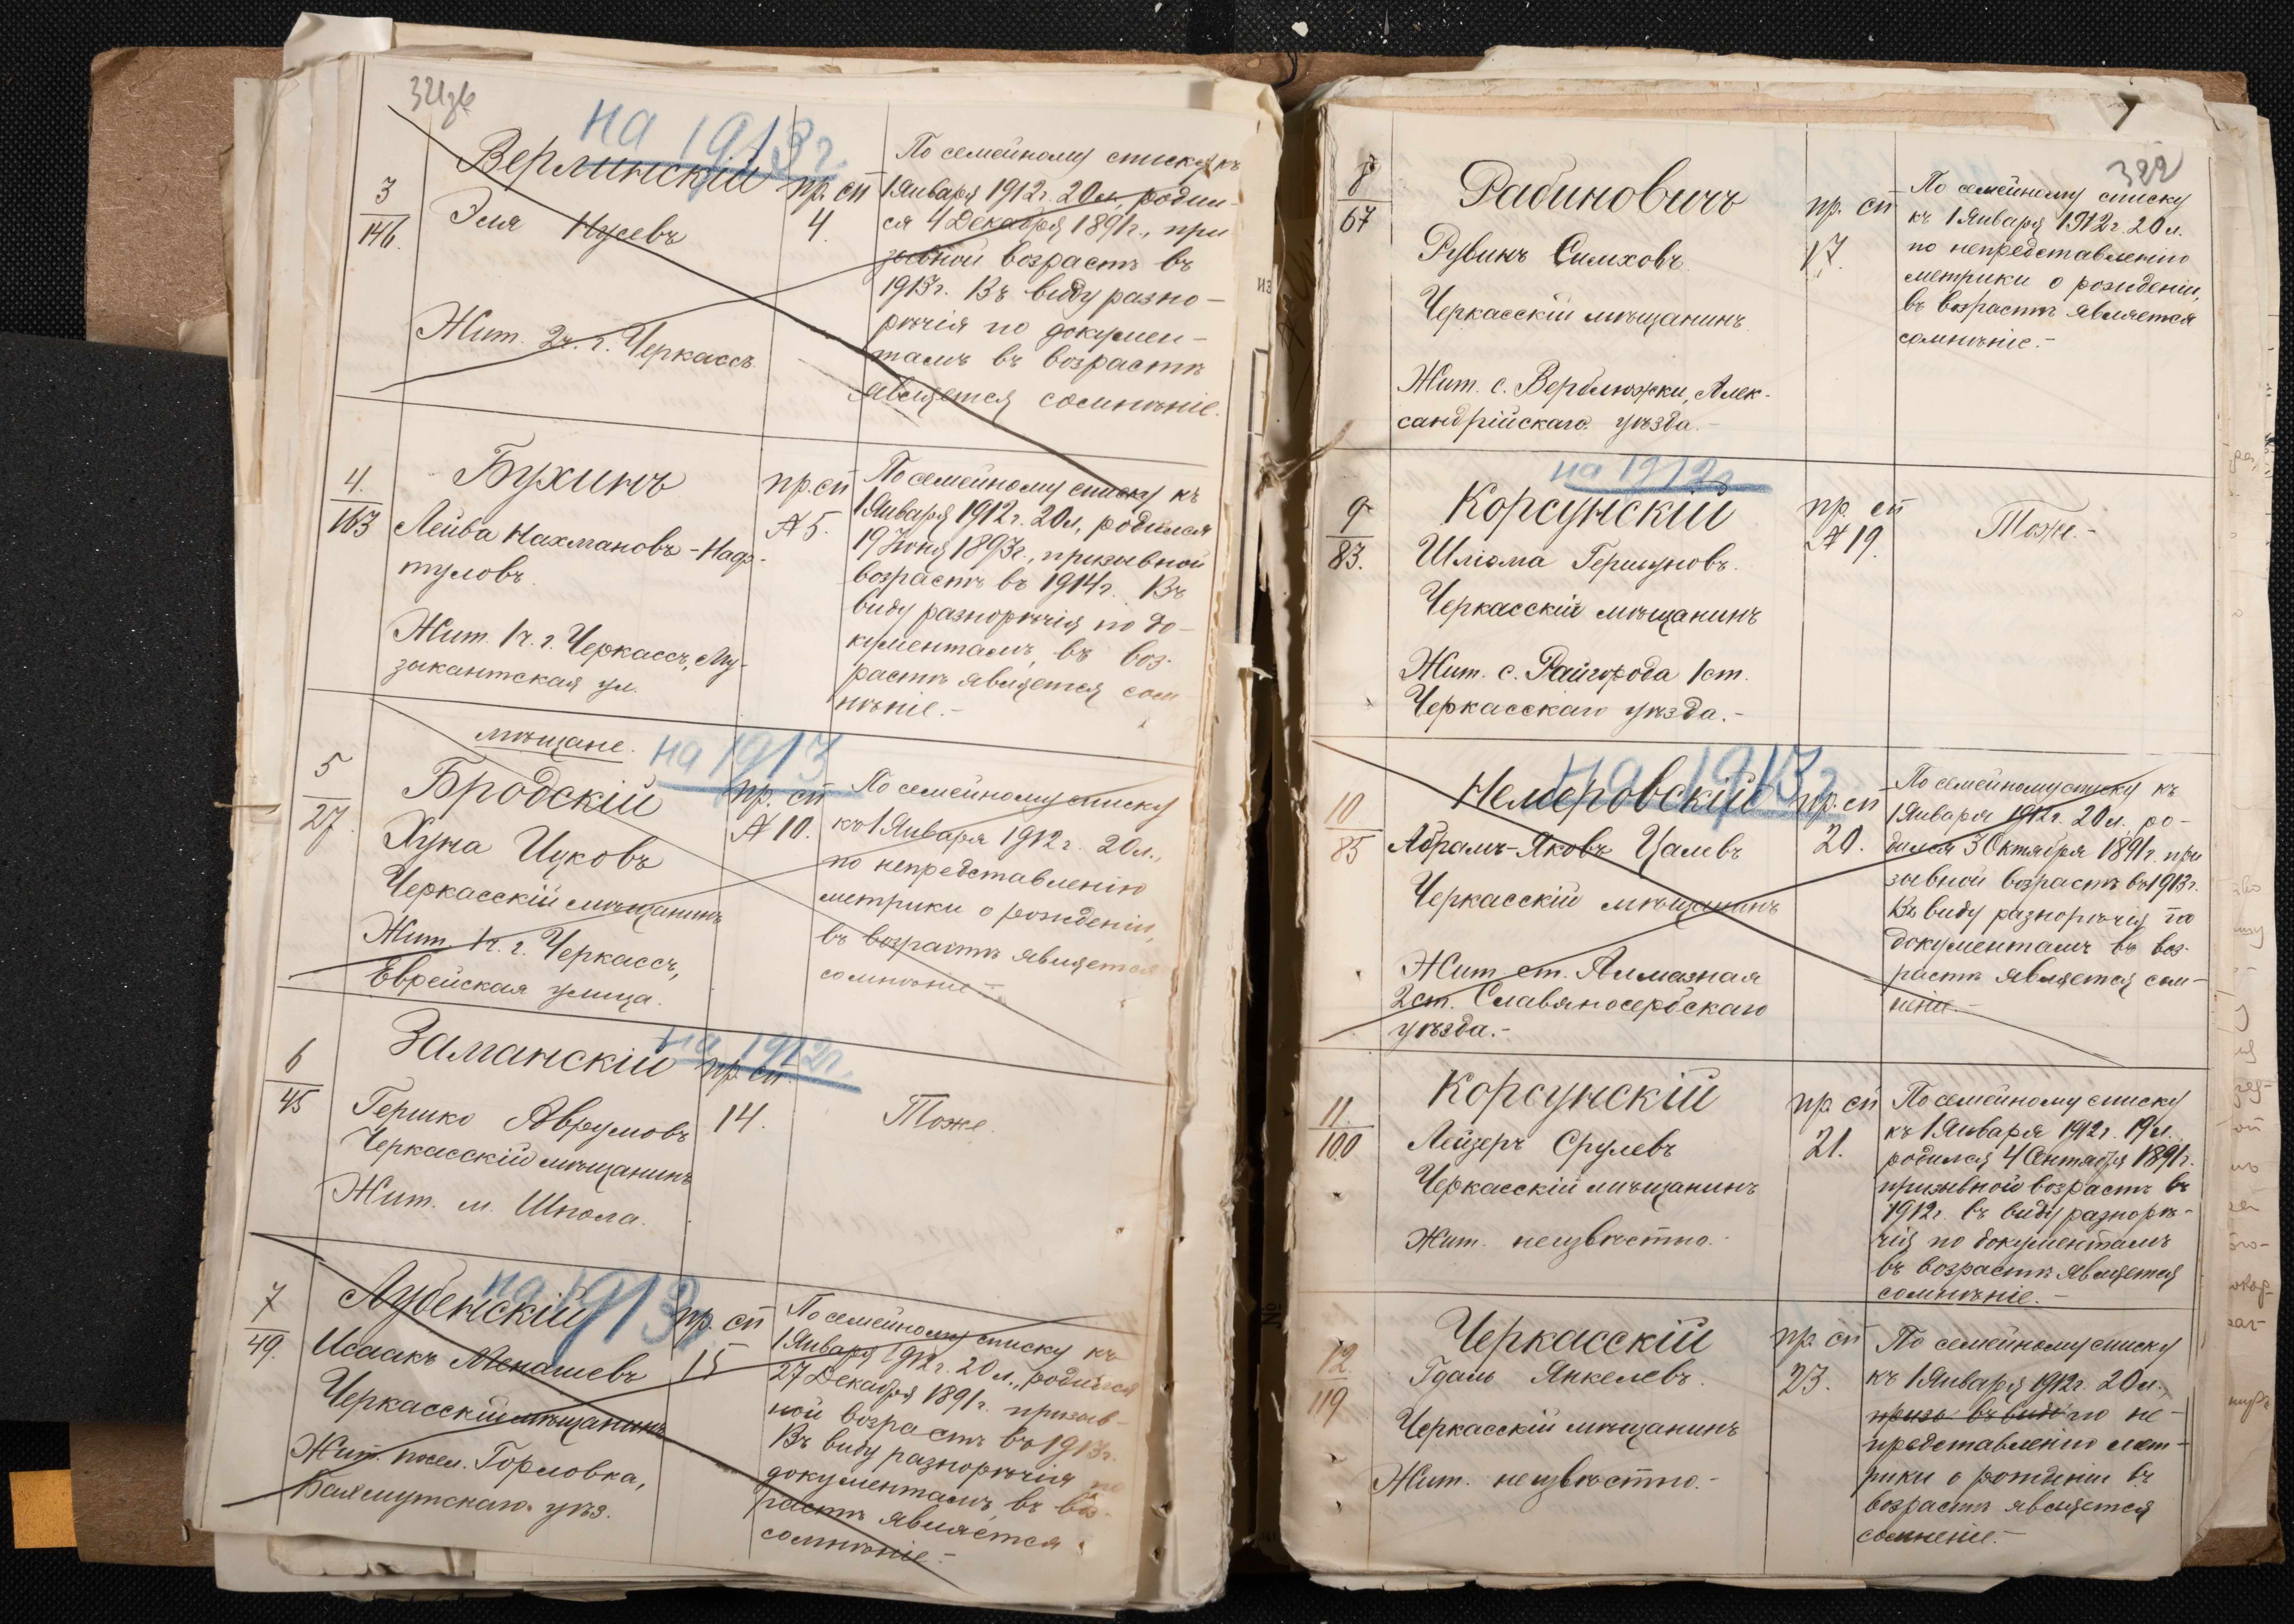 321об
на 1913г.
3
146.
Верлинскій
Эля Нусевъ
Жит. 2ч. г. Черкассъ
пр. сп
4.
По семейному списку къ
1 Января 1912г. 20 л., родил-
ся 4 Декабря 1891г., при
зывной возрастъ въ
1913г. Въ виду разно-
рѣчія по докумен-
тамъ въ возрастѣ
является сомнѣніе.
4.
163
Бухинъ
Лейба Нахмановъ-Наф-
туловъ.
Жит. 1ч. г. Черкассъ, Му-
зыкантская ул.
пр. сп
№ 5.
По семейному списку къ
1 Января 1912г. 20 л., родился
19 Іюня 1893г., призывной
возрастъ въ 1914г. Въ
виду разнорѣчія по до-
кументамъ, въ воз-
растѣ является сом
нѣніе.-
мѣщане.
на 1913
5
27.
Бродскій
Хуна Ицковъ
Черкасскій мѣщанинъ
Жит. 1ч. г. Черкассъ,
Еврейская улица.
пр. сп
№ 10.
По семейному списку
къ 1 Января 1912г. 20 л.,
по непредставленію
метрики о рожденіи,
въ возрастѣ является
сомнѣніе-
на 1912г.
6
45
Заманскій
Гершко Аврумовъ
Черкасскій мѣщанинъ
Жит. м. Шпола.
пр. сп.
14.
Тоже.
на 1913
7
49.
Лубенскій
Исаакъ Менашевъ
Черкасскій мѣщанинъ
Жит. посел. Горловка,
Бахмутскаго уѣз.
пр. сп
15
По семейному списку къ
1 Января 1912г. 20 л., родился
27 Декабря 1891г. призыв-
ной возрастъ въ 1913г.
Въ виду разнорѣчія по
документамъ въ воз-
растѣ является
сомнѣніе.-
322
8
67
Рабиновичъ
Рувинъ Симховъ
Черкасскій мѣщанинъ
Жит. с. Верблюжки, Алек-
сандрійскаго уѣзда.-
пр. сп
17.
По семейному списку
къ 1 Января 1912г. 20 л.
по непредставленію
метрики о рожденіи,
въ возрастѣ является
сомнѣніе.-
на 1912г
9
83.
Корсунскій
Шліома Гершуновъ.
Черкасскій мѣщанинъ
Жит. с. Райгорода 1 ст.
Черкасскаго уѣзда.-
пр. сп
№ 19.
Тоже.-
на 1913г
10
85
Немировскій
Абрамъ-Яковъ Цалевъ
Черкасскій мѣщанинъ
Жит. ст. Алмазная
2 ст. Славяносербскаго
уѣзда.-
пр. сп
20.
По семейному списку къ
1 Января 1912г. 20 л. ро-
дился 3 Октября 1891г. при
зывной возрастъ въ 1913г.
Въ виду разнорѣчія по
документамъ въ воз-
растѣ является сом-
неніе.-
11.
100
Корсунскій
Лейзеръ Срулевъ
Черкасскій мѣщанинъ
Жит. неизвѣстно.
пр. сп
21.
По семейному списку
къ 1 Января 1912г. 19 л.
родился 4 Сентября 1891г.
призывной возрастъ въ
1912г. въ виду разнорѣ-
чія по документамъ
въ возрастѣ является
сомнѣніе.-
12
119
Черкасскій
Гдаль Янкелевъ.
Черкасскій мѣщанинъ
Жит. неизвѣстно.-
пр. сп
23.
По семейному списку
къ 1 Января 1912г. 20 л.,
призы въ виду по не-
представленію мет-
рики о рожденіи въ
возрастѣ является
сомненіе.-